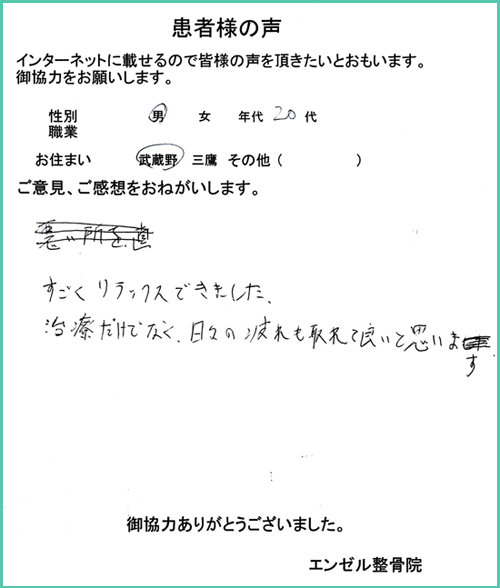 患者様の声
インターネットに載せるので皆様の声を頂きたいとおもいます。
御協力をお願いします。
性別 男 女 年代 20 代
職業
お住まい 武蔵野 三鷹 その他 ( )
ご意見、ご感想をおねがいします。
悪い所を直
すごくリラックスできました、
治療だけでなく、日々の疲れも取れて良いと思いま
す
御協力ありがとうございました。
エンゼル整骨院